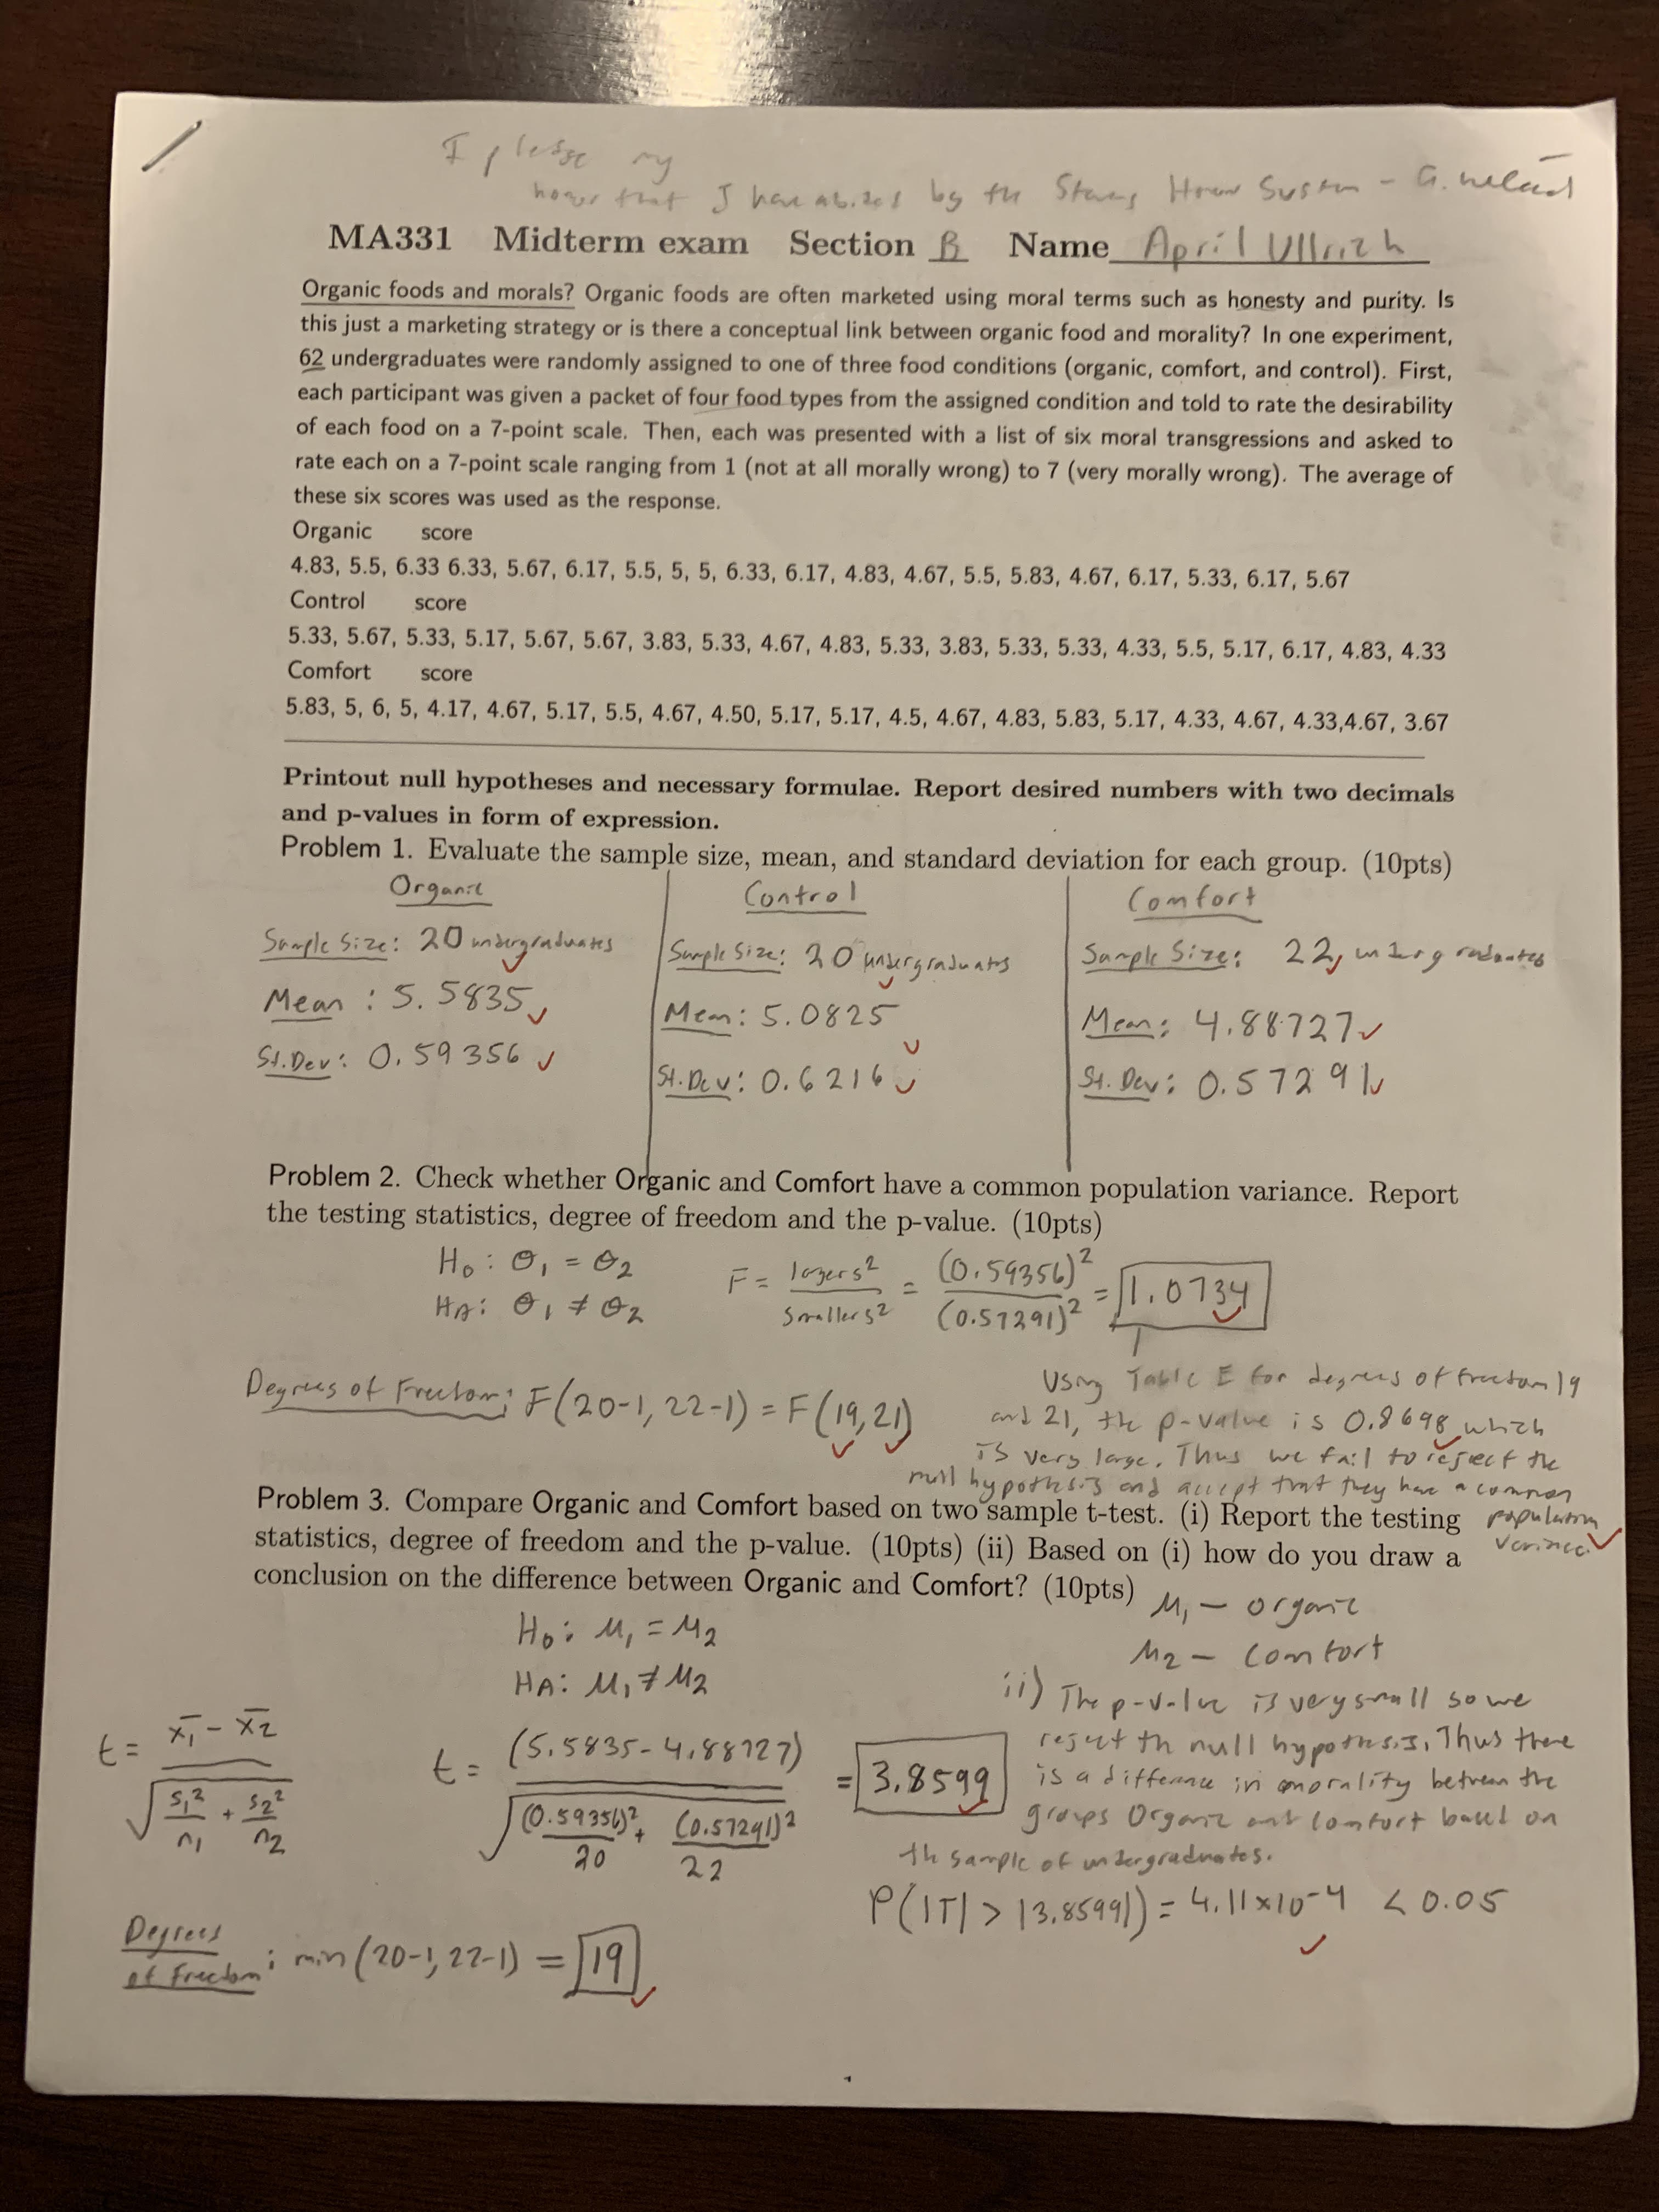 I pledge my
honor that I have abided by the Stevens Honor System -
MA331 Midterm exam Section B Name April Ullrich
Organic foods and morals? Organic foods are often marketed using moral terms such as honesty and purity. Is
this just a marketing strategy or is there a conceptual link between organic food and morality? In one experiment,
62 undergraduates were randomly assigned to one of three food conditions (organic, comfort, and control). First,
each participant was given a packet of four food types from the assigned condition and told to rate the desirability
of each food on a 7-point scale. Then, each was presented with a list of six moral transgressions and asked to
rate each on a 7-point scale ranging from 1 (not at all morally wrong) to 7 (very morally wrong). The average of
these six scores was used as the response.
Organic score
4.83, 5.5, 6.33 6.33, 5.67, 6.17, 5.5, 5, 5, 6.33, 6.17, 4.83, 4.67, 5.5, 5.83, 4.67, 6.17, 5.33, 6.17, 5.67
Control score
5.33, 5.67, 5.33, 5.17, 5.67, 5.67, 3.83, 5.33, 4.67, 4.83, 5.33, 3.83, 5.33, 5.33, 4.33, 5.5, 5.17, 6.17, 4.83, 4.33
Comfort score
5.83, 5, 6, 5, 4.17, 4.67, 5.17, 5.5, 4.67, 4.50, 5.17, 5.17, 4.5, 4.67, 4.83, 5.83, 5.17, 4.33, 4.67, 4.33,4.67, 3.67
Printout null hypotheses and necessary formulae. Report desired numbers with two decimals
and p-values in form of expression.
Problem 1. Evaluate the sample size, mean, and standard deviation for each group. (10pts)
Organic
Sample Size: 20 undergraduates
Mean : 5.5835
St.Dev: 0.59356
Control
Sample Size: 20 undergraduates
Mean: 5.0825
St.Dev: 0.6216
Comfort
Sample Size: 22, undergraduates
Mean: 4.88727
St. Dev: 0.57291
Problem 2. Check whether Organic and Comfort have a common population variance. Report
the testing statistics, degree of freedom and the p-value. (10pts)
H₀: Θ₁ = Θ₂
HA: Θ₁ ≠ Θ₂
F = larger s² / smaller s² = (0.59356)² / (0.57291)² = 1.0734
Degrees of Freedom: F(20-1, 22-1) = F(19,21)
Using Table E for degrees of freedom 19
and 21, the p-value is 0.8698 which
is very large. Thus we fail to reject the
null hypothesis and accept that they have a common
population
variance.
Problem 3. Compare Organic and Comfort based on two sample t-test. (i) Report the testing
statistics, degree of freedom and the p-value. (10pts) (ii) Based on (i) how do you draw a
conclusion on the difference between Organic and Comfort? (10pts)
μ₁ - organic
μ₂ - Comfort
H₀: μ₁ = μ₂
HA: μ₁ ≠ μ₂
t = x̄₁ - x̄₂ / √(s₁²/n₁ + s₂²/n₂)
t = (5.5835 - 4.88727) / √((0.59356)²/20 + (0.57291)²/22) = 3.8599
ii) The p-value is very small so we
reject th null hypothesis. Thus there
is a difference in morality between the
groups Organic and Comfort based on
th sample of undergraduates.
P(|T| > |3.8599|) = 4.11x10⁻⁴ < 0.05
Degrees
of Freedom: min(20-1, 22-1) = 19